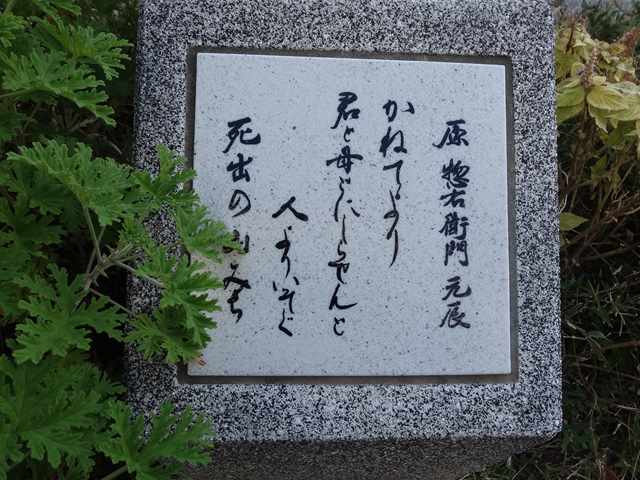 原 惣右衛門 元辰
かねてより
君と母とにしらせんと
人よりいそぐ
死出の山みち